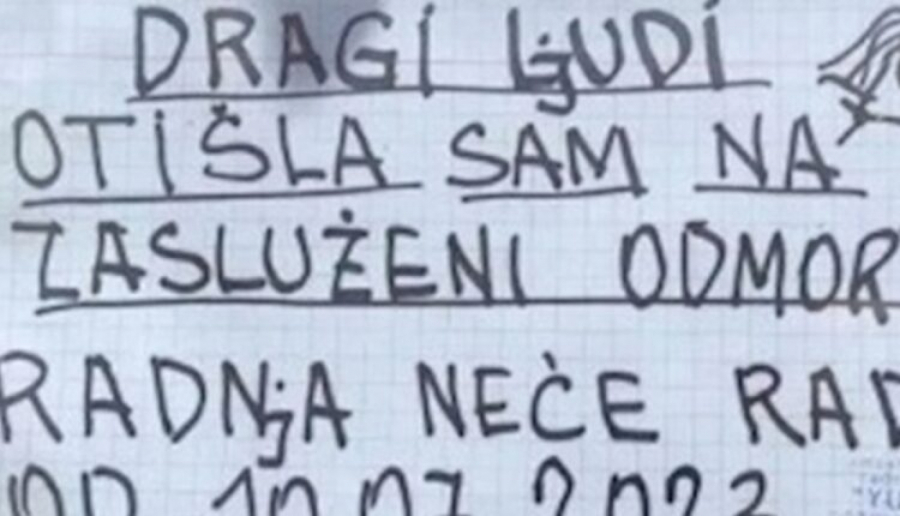 DRAGI LjUDI
OTIŠLA SAM NA
ZASLUŽENI ODMOR
RADNjA NEĆE RAD
OD 10.07.2023